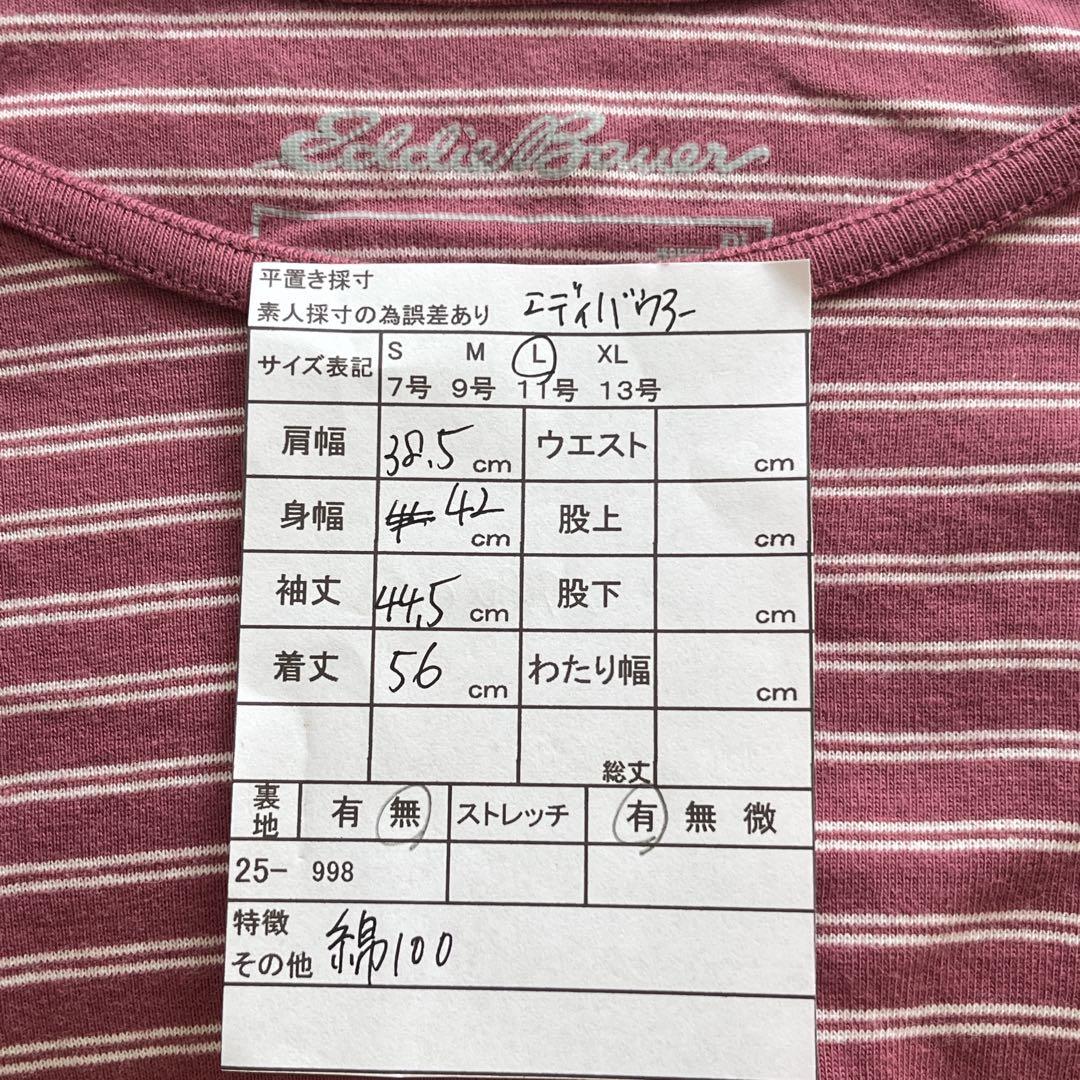 Eddie Bauer
平置き採寸
素人採寸の為誤差あり エディバウアー
サイズ表記 S M L XL
7号 9号 11号 13号
肩幅 38.5 cm ウエスト cm
身幅 42 cm 股上 cm
袖丈 44.5 cm 股下 cm
着丈 56 cm わたり幅 cm
総丈
裏地 有 無 ストレッチ 有 無 微
25- 998
特徴
その他 綿100